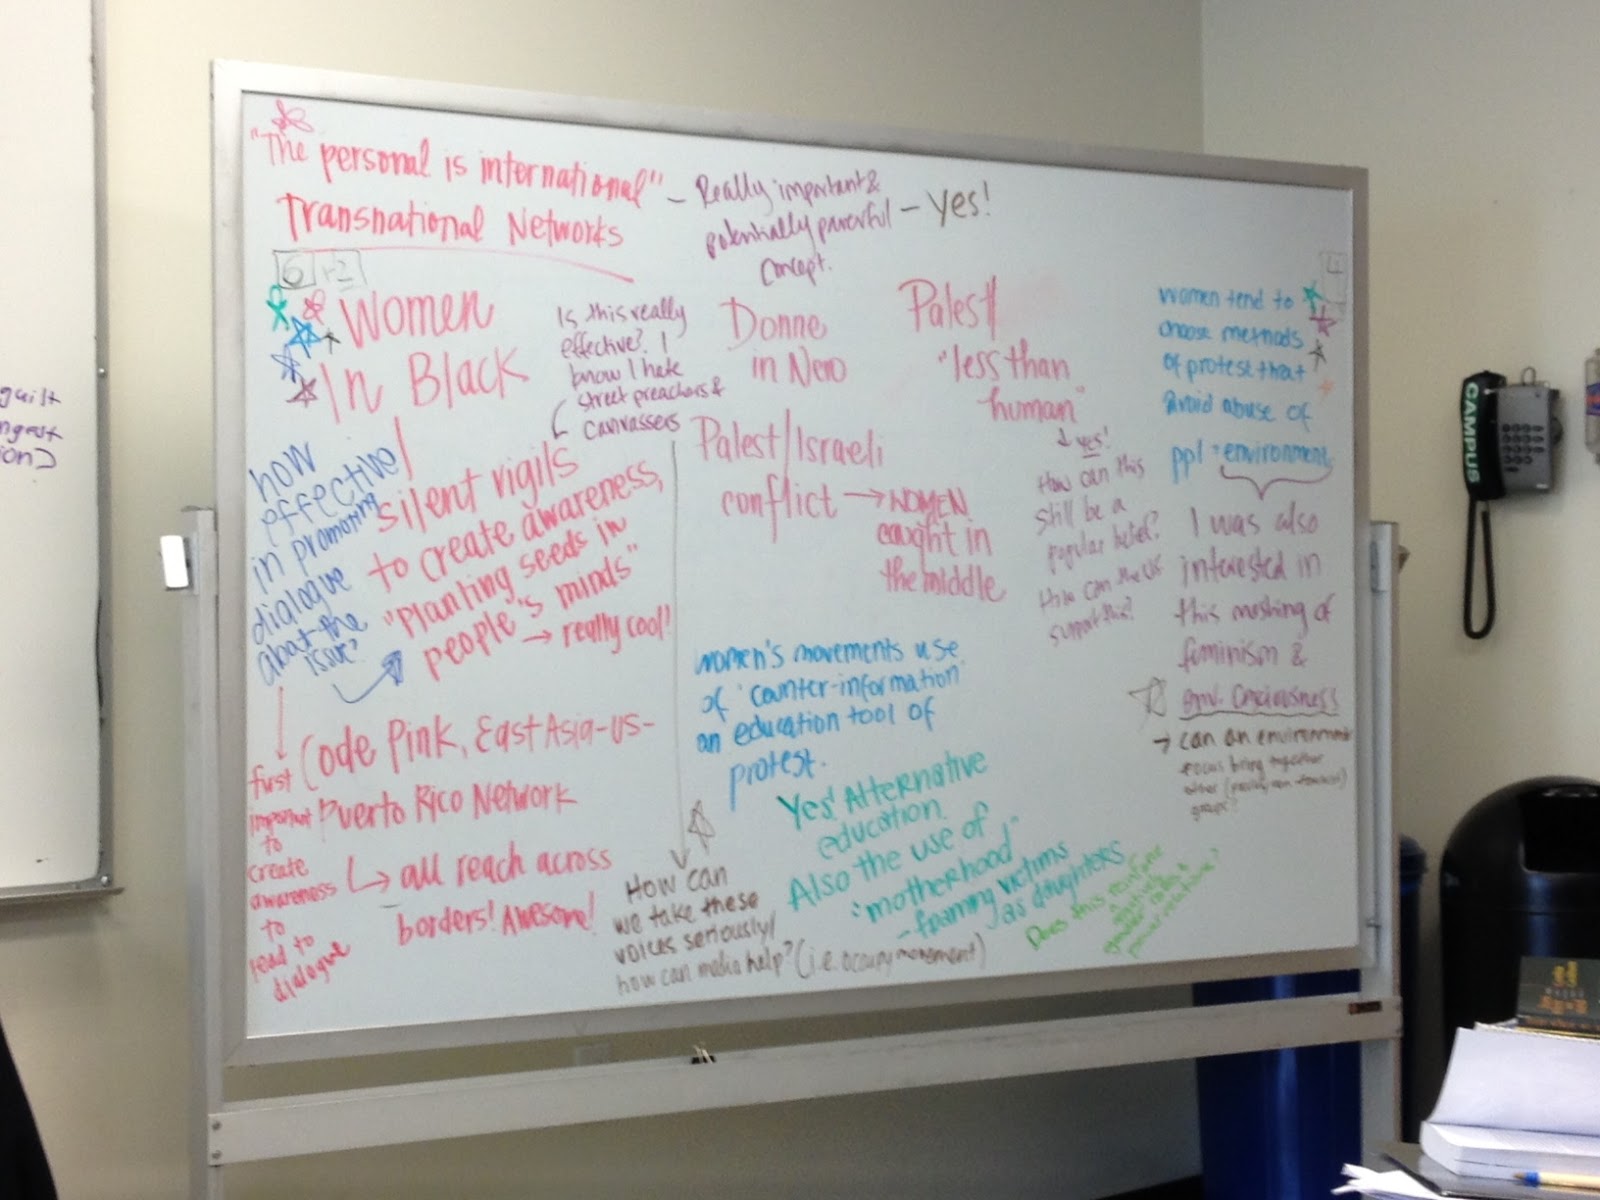 "The personal is international"
Transnational Networks
– Really important &
potentially powerful
concept.
– Yes!
6 +2
Women
In Black
Is this really
effective? I
know I hate
street preachers &
canvassers
Donne
in Nero
Palest/
"less than
human"
↓ yes!
How can this
still be a
popular belief?
How can the US
support this?
4
women tend to
choose methods
of protest that
avoid abuse of
ppl + environment
I was also
interested in
this meshing of
feminism &
env. consciousness
→ can an environment
focus bring together
other
groups?
how
effective
in promoting
dialogue
about the
issue?
silent vigils
to create awareness,
"Planting seeds in
people's minds"
→ really cool!
Palest/Israeli
conflict → WOMEN
caught in
the middle
women's movements use
of "counter-information"
an education tool of
protest.
Yes! Alternative
education.
Also the use of
"motherhood"
– framing victims
as daughters
Does this reinforce
existing
gender roles &
power relations?
Code Pink, East Asia-US-
Puerto Rico Network
↳ all reach across
borders! Awesome!
first
important
to
create
awareness
to
lead to
dialogue
How can
we take these
voices seriously/
how can media help? (i.e. occupy movement)
guilt
ngest
ion)
CAMPUS